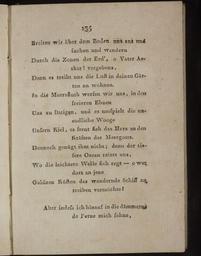 135
Breiten wir über dem Boden uns aus und
suchen und wandern
Durch die Zonen der Erd', o Vater Aether! vergebens,
Denn es treibt uns die Lust in deinen Gärten zu wohnen.
In die Meersfluth werfen wir uns, in den
freieren Ebnen
Uns zu sättigen, und es umspielt die unendliche Wooge
Unsern Kiel, es freut sich das Herz an den
Kräften des Meergotts.
Dennoch genügt ihm nicht; denn der tiefere Ozean reizt uns,
Wo die leichtere Welle sich regt — o wer
dort an jene
Goldnen Küsten das wandernde Schiff zu
treiben vermöchte!
Aber indeß ich hinauf in die dämmernde Ferne mich sehne,